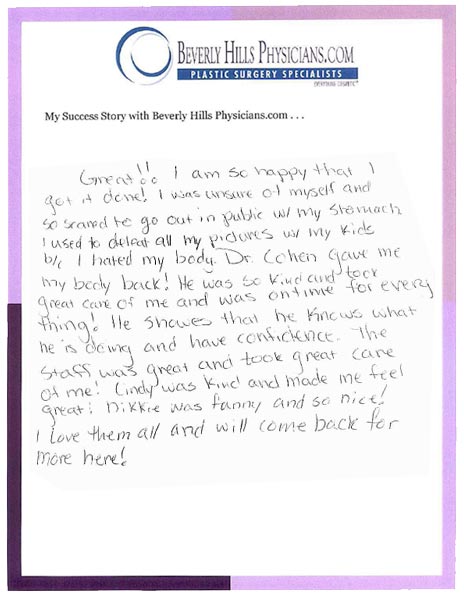 BEVERLY HILLS PHYSICIANS.COM
PLASTIC SURGERY SPECIALISTS
My Success Story with Beverly Hills Physicians.com . . .
Great!! I am so happy that I
got it done! I was unsure of myself and
so scared to go out in public w/ my stomach
I used to deleat all my pictures w/ my kids
b/c I hated my body. Dr. Cohen gave me
my body back! He was so kind and took
great care of me and was ontime for every
thing! He showes that he knows what
he is doing and have confidence. The
staff was great and took great care
of me! Cindy was kind and made me feel
great! Nikkie was fanny and so nice!
I love them all and will come back for
more here!